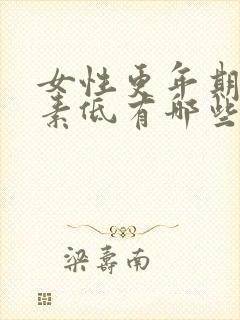 女性更年期
素低有哪些
梁寿南